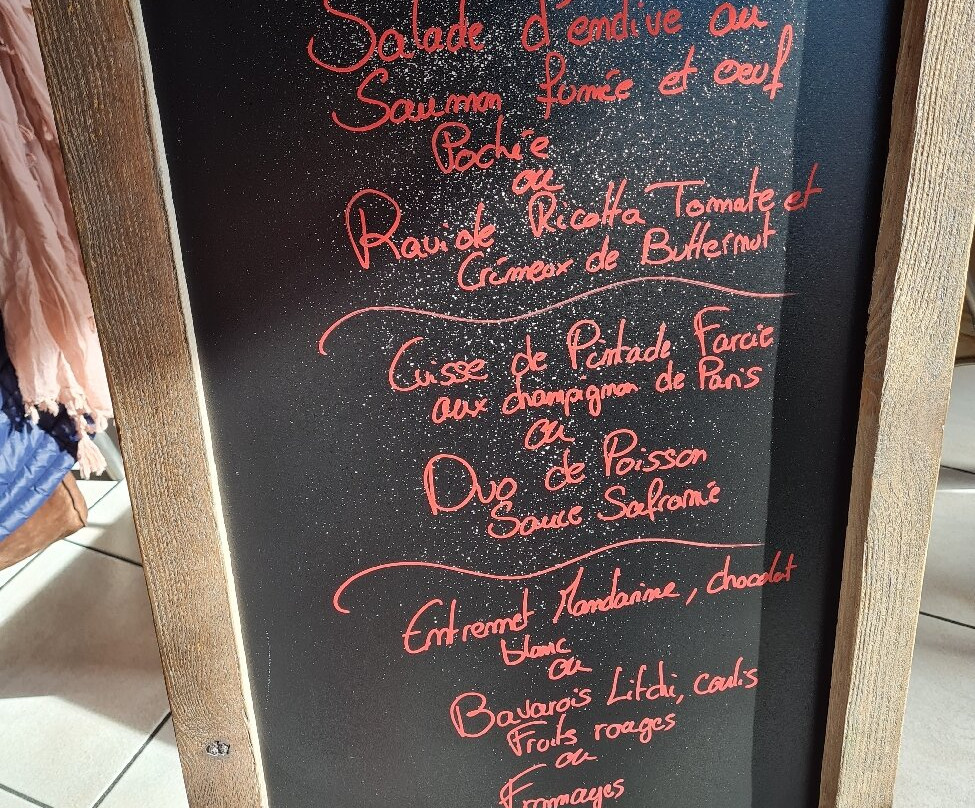 Salade d'endive au
Saumon fumée et oeuf
Pochée
ou
Raviole Ricotta Tomate et
Crémeox de Butternut
Cuisse de Pintade Farcie
aux champignon de Paris
ou
Duo de Poisson
Sauce Safranée
Entremet Mandarine, chocolat
blanc
ou
Bavarois Litchi, coulis
Fruits rouges
ou
Frommages